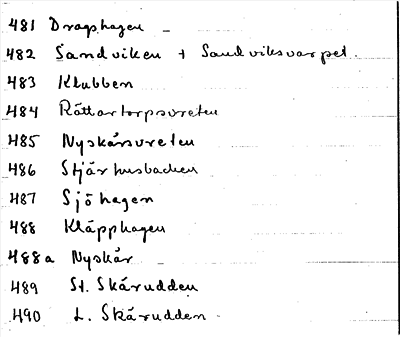 481 Dragshagen -
482 Sandviken + Sandviksvarpet.
483 Klubben
484 Rättartorpsvreten
485 Nyskärsvreten
486 Stjärhusbacken
487 Sjöhagen
488 Kläpphagen
488a Nyskär
489 St. Skärudden
490 L. Skärudden -